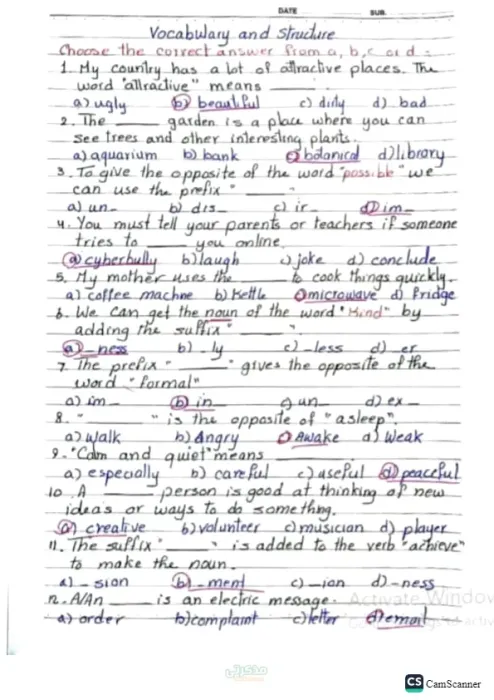 DATE SUB.
Vocabulary and Structure
Choose the correct answer from a, b, c or d :
1. My country has a lot of attractive places. The
word "attractive" means
a) ugly b) beautiful c) dirty d) bad
2. The ______ garden is a place where you can
see trees and other interesting plants.
a) aquarium b) bank c) botanical d) library
3. To give the opposite of the word "possible" we
can use the prefix "______"
a) un- b) dis- c) ir- d) im-
4. You must tell your parents or teachers if someone
tries to ______ you online.
a) cyberbully b) laugh c) joke d) conclude
5. My mother uses the ______ to cook things quickly.
a) coffee machine b) Kettle c) microwave d) Fridge
6. We can get the noun of the word "Kind" by
adding the suffix "______".
a) -ness b) -ly c) -less d) -er
7. The prefix "______" gives the opposite of the
word "formal"
a) im- b) in- c) un- d) ex-
8. "______" is the opposite of "asleep".
a) walk b) Angry c) Awake d) Weak
9. "Calm and quiet" means ______
a) especially b) careful c) useful d) peaceful
10. A ______ person is good at thinking of new
ideas or ways to do something.
a) creative b) volunteer c) musician d) player
11. The suffix "______" is added to the verb "achieve"
to make the noun.
a) -sion b) -ment c) -ion d) -ness
12. A/An ______ is an electric message.
a) order b) complaint c) letter d) email
Activate Window
مذكرتي
CS CamScanner